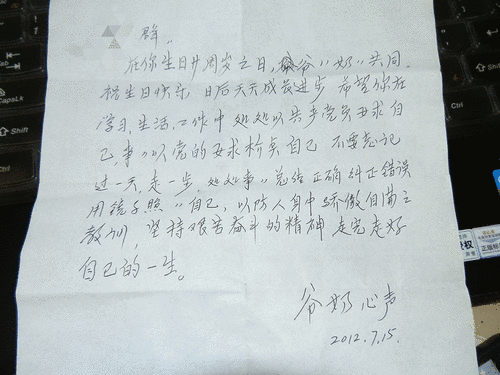 群：
在你生日廿周岁之日，爷爷〃奶〃共同
祝生日快乐 日后天天成长进步 希望你在
学习，生活，工作中 处处以共产党员要求自
己，事〃以党的要求检点自己 不要忘记
过一天，走一步，处处事〃总结 正确 纠正错误
用镜子照〃自己，以防人身中骄傲自满之
教训，坚持艰苦奋斗的精神 走完走好
自己的一生。
爷奶心声
2012.7.15.
CapsLk
Shift
Ctrl
Shift
Ctrl